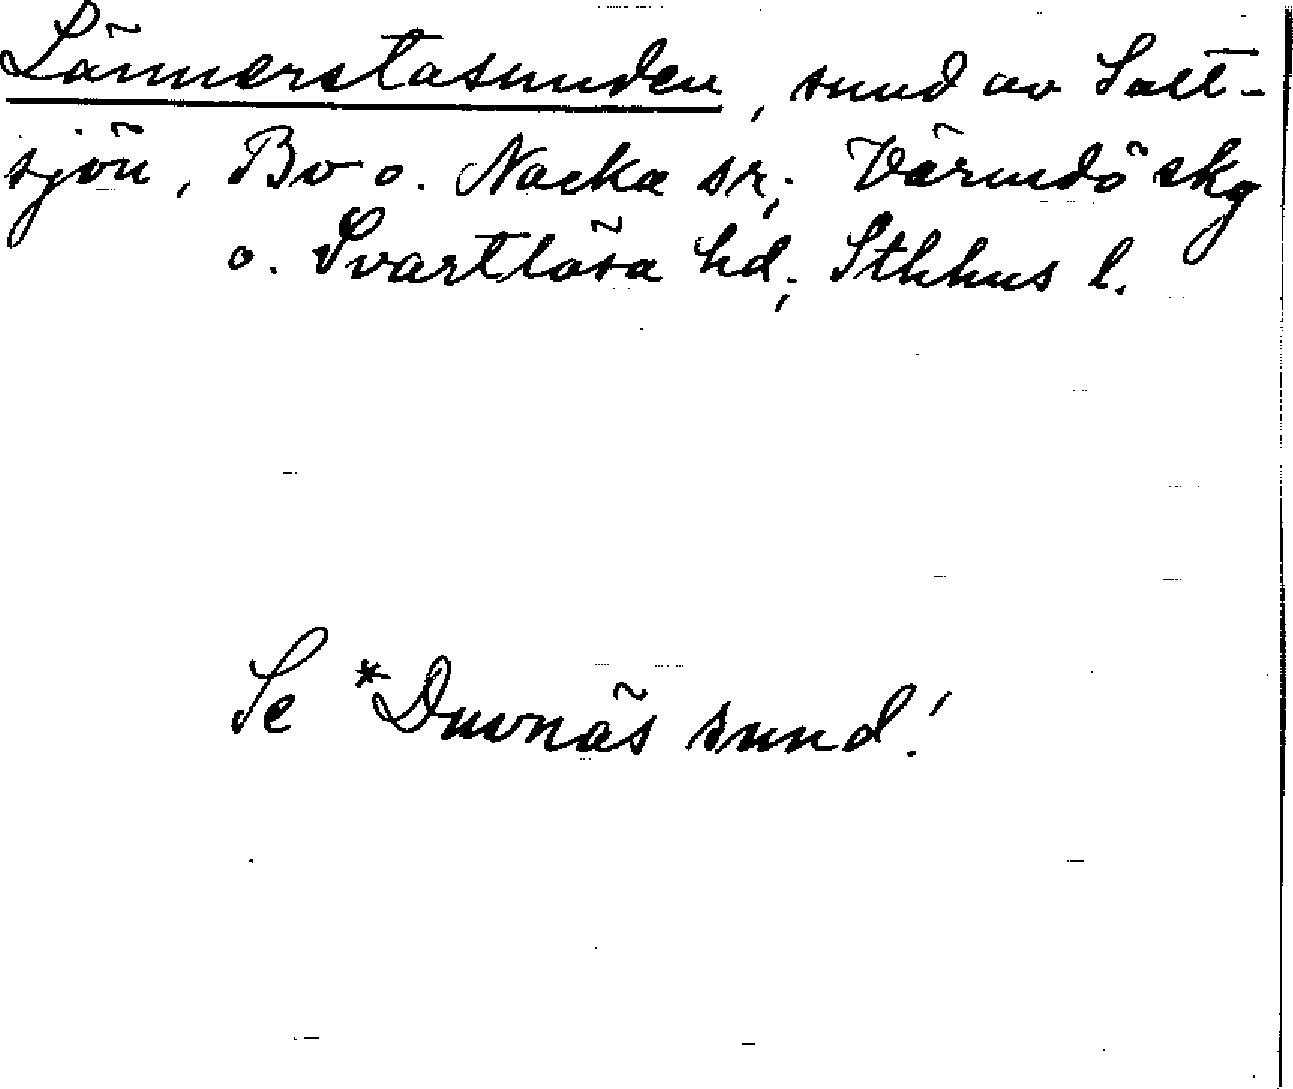 Lännerstasunden, sund av Salt-
sjön, Bo o. Nacka sr; Värmdö skg
o. Svartlösa hd; Sthlms l.
Se *Duvnäs sund!